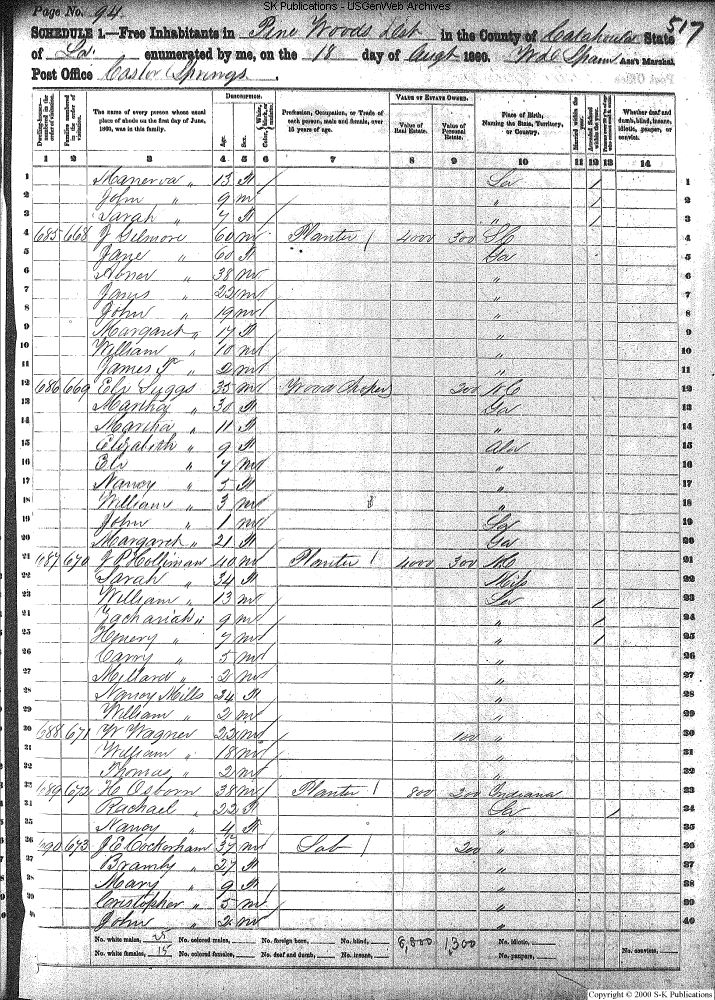 SK Publications - USGenWeb Archives
Page No. 94
517
SCHEDULE 1.—Free Inhabitants in Pine Woods Dist in the County of Catahoula State
of La. enumerated by me, on the 18 day of Augt 1860. Ass't Marshal
Post Office Castor Springs.
DESCRIPTION. VALUE OF ESTATE OWNED.
Dwelling-houses—numbered in the order of visitation. Families numbered in the order of visitation. The name of every person whose usual place of abode on the first day of June, 1860, was in this family. Age. Sex. Profession, Occupation, or Trade of each person, male and female, over 15 years of age. Value of Real Estate. Value of Personal Estate. Place of Birth, Naming the State, Territory, or Country. Married within the year. Attended School within the year. Whether deaf and dumb, blind, insane, idiotic, pauper, or convict.
1 2 3 4 5 6 7 8 9 10 11 12 13 14
1 Manerva " 13 f / La / 1
2 John " 9 m " / 2
3 Sarah " 7 f " / 3
4 685 668 J Gilmore 60 m Planter / 4000 300 SC 4
5 Jane " 60 f Ga 5
6 Abner " 38 m " 6
7 James " 22 m " 7
8 John " 19 m " 8
9 Margaret " 17 f " 9
10 William " 10 m " 10
11 James F " 2 m " 11
12 686 669 Eli Suggs 35 m Wood Choper 200 NC 12
13 Martha " 30 f Ga 13
14 Martha " 11 f " 14
15 Elizabeth " 9 f Ala 15
16 Eli " 7 m " 16
17 Nancy " 5 f " 17
18 William " 3 m " 18
19 John " 1 m La 19
20 Margaret " 21 f Ga 20
21 687 670 J P Holliman 40 m Planter / 4000 300 NC 21
22 Sarah " 34 f Miss 22
23 William " 13 m La / 23
24 Zachariah " 9 m " / 24
25 Henery " 7 m " / 25
26 Carry " 5 m " 26
27 Millard " 2 m " 27
28 Nancy Mills 24 f " 28
29 William " 2 m " 29
30 688 671 W Wagner 22 m 100 " 30
31 William " 18 m " 31
32 Thomas " 2 m " 32
33 689 672 H Osborn 38 m Planter / 800 200 Indiana 33
34 Rachael " 22 f La / 34
35 Nancy " 4 f " 35
36 690 673 J E Cockerham 37 m Lab / 200 " 36
37 " 27 f " 37
38 Mary " 9 f " 38
39 Cristopher " 5 m " 39
40 John " 2 m " 40
No. white males, 25 No. colored males, No. foreign born, No. blind, 8,800 1,300 No. idiotic,
No. white females, 15 No. colored females, No. deaf and dumb, No. insane, No. paupers, No. convicts,
Copyright © 2000 S-K Publications